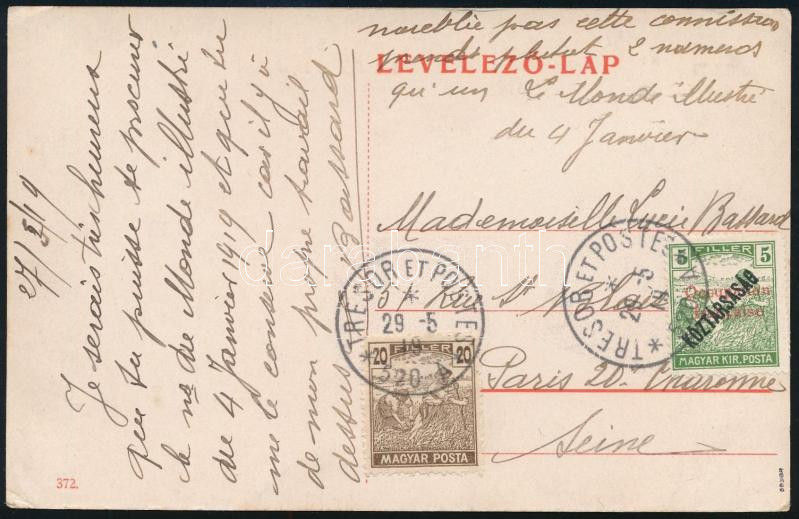 27/5/19
Je serais très heureux
que tu puisse te procurer
le no du Monde illustré
du 4 Janvier 1919 et que tu
me le conserve car il y à
de mon propre travail
dessus Bassard
noublie pas cette commission
prends plutot 2 numeros
LEVELEZŐ-LAP
qu'un Le Monde illustré
du 4 Janvier
Mademoiselle Lucie Bassard
57 Rue St Blaise
Paris 20
Seine
TRESOR ET POSTES
29 - 5
19
* 520 A *
TRESOR ET POSTES
29 - 5
FILLER
5 5
Occupation
française
KÖZTÁRSASÁG
MAGYAR KIR. POSTA
20 FILLER 20
MAGYAR POSTA
372.
darabanth